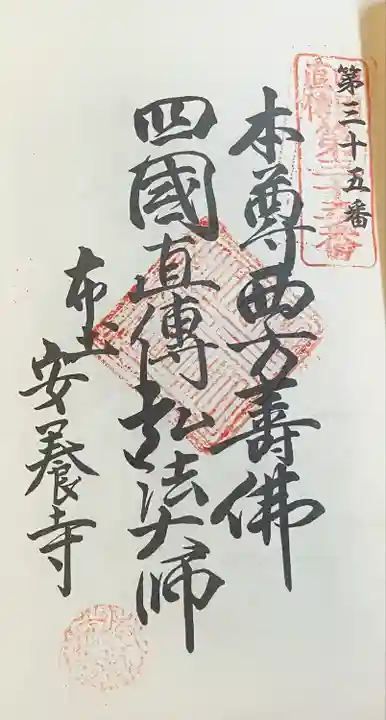 第三十五番
直傳第三十五番
本尊西方壽佛
四國直傳弘法大師
布土安養寺